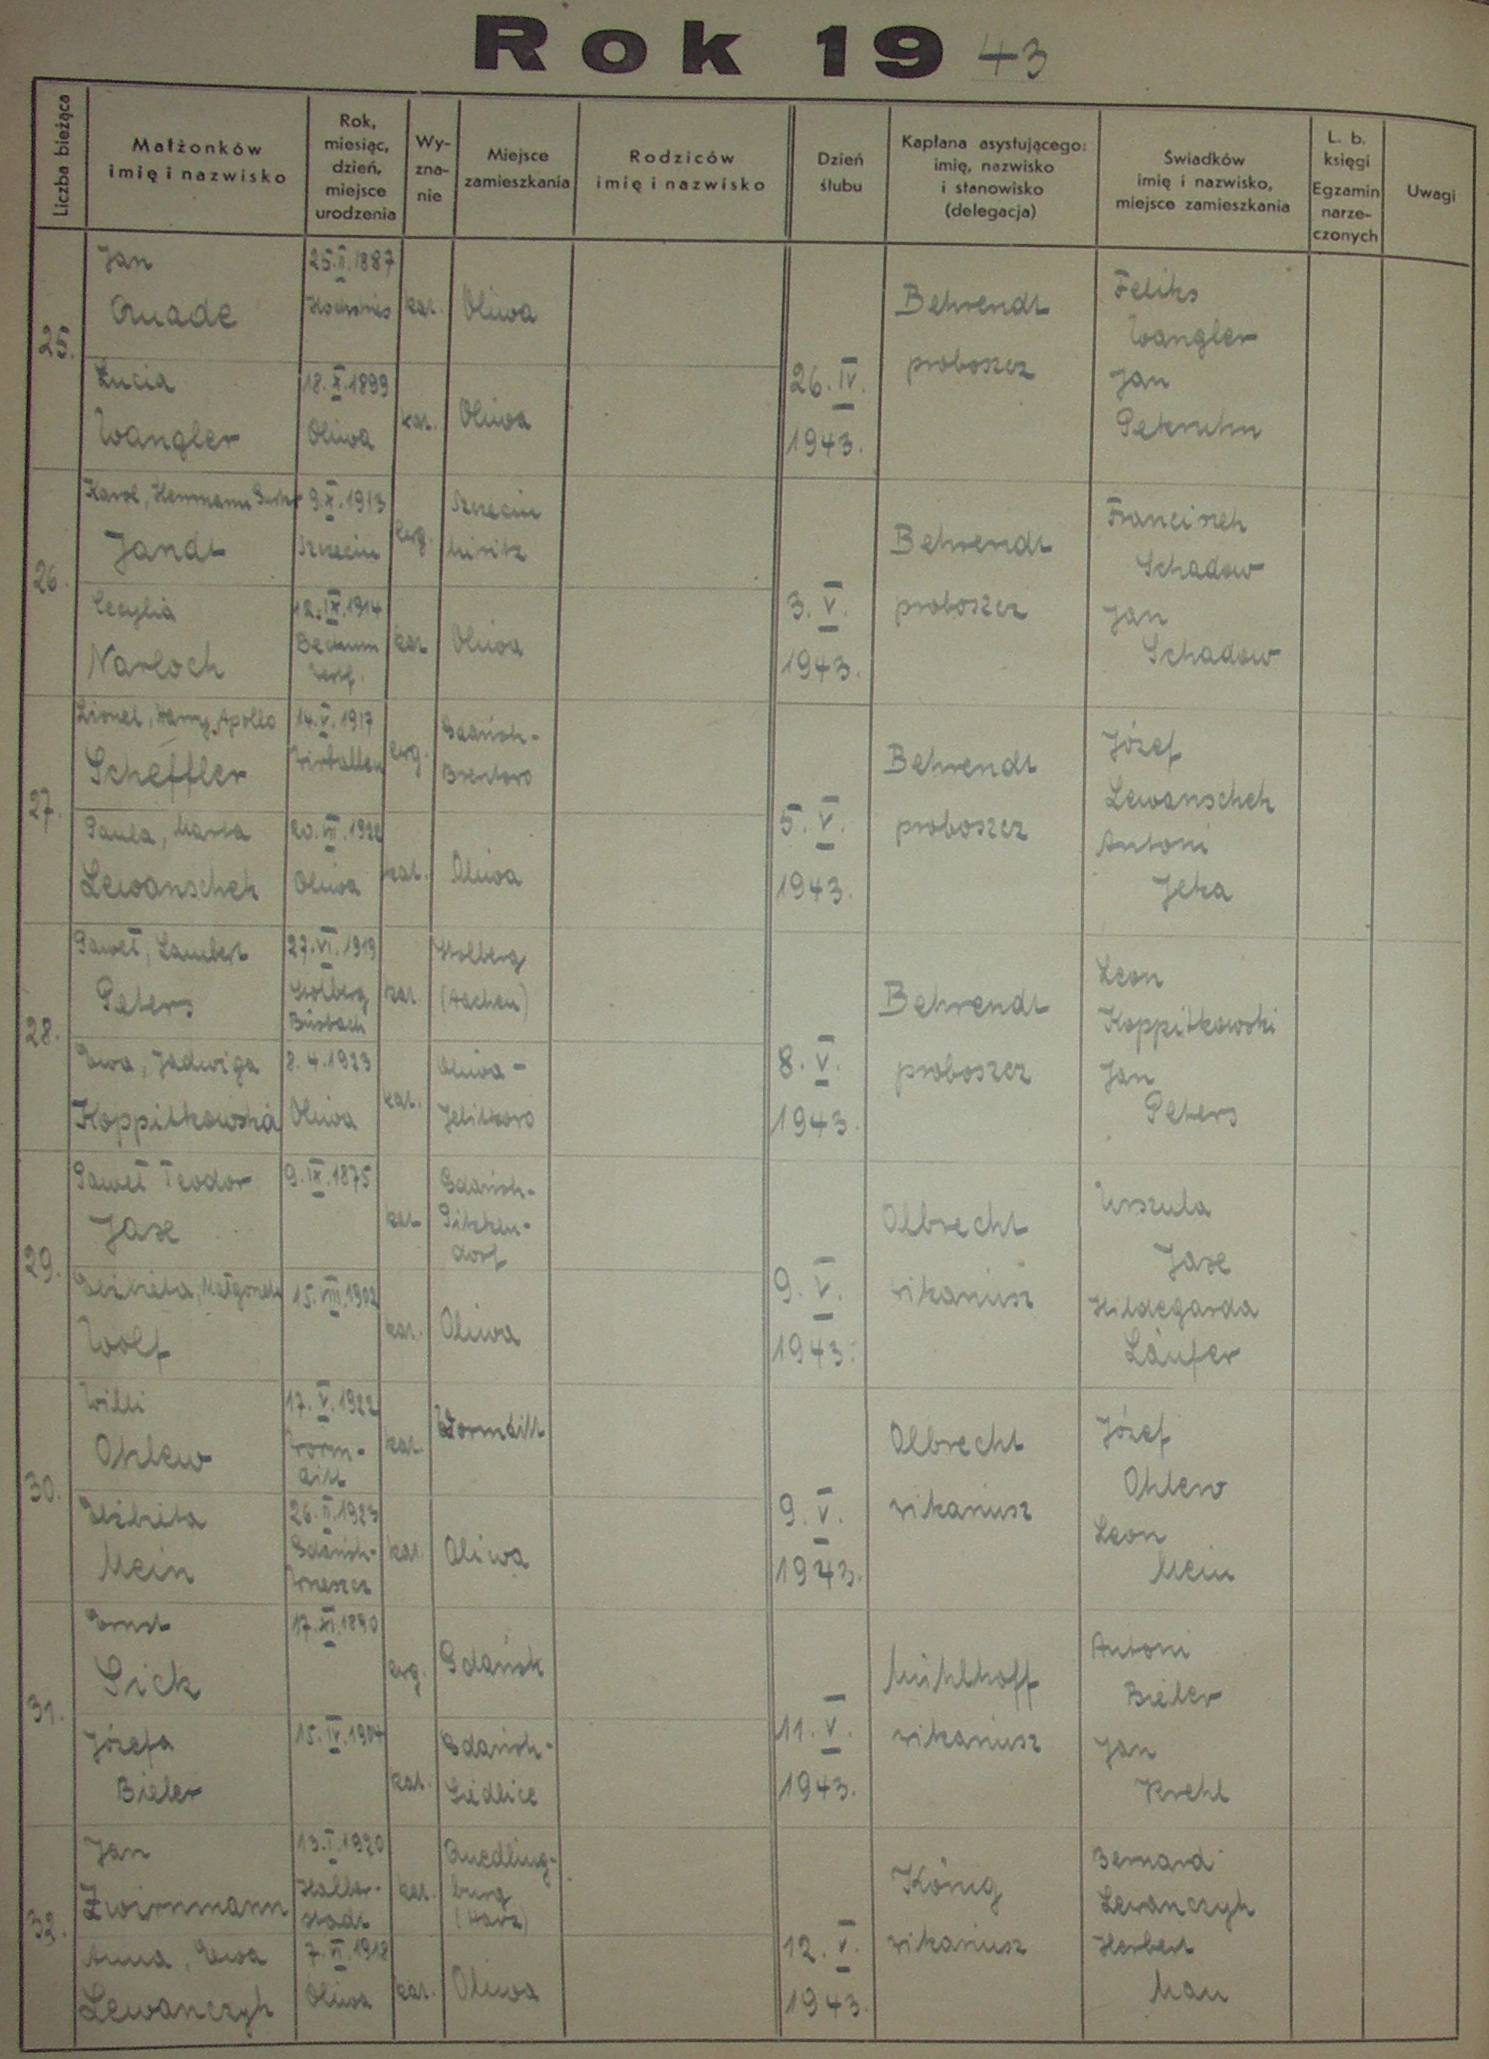 Rok 19 43
Liczba bieżąca
Małżonków
imię i nazwisko
Rok,
miesiąc,
dzień,
miejsce
urodzenia
Wy-
zna-
nie
Miejsce
zamieszkania
Rodziców
imię i nazwisko
Dzień
ślubu
Kapłana asystującego:
imię, nazwisko
i stanowisko
(delegacja)
Świadków
imię i nazwisko,
miejsce zamieszkania
L. b.
księgi
Egzamin
narze-
czonych
Uwagi
25.
Jan
Quade
25.II.1887
kat.
Oliwa
Łucia
Wangler
18.X.1899
Oliwa
kat.
Oliwa
26.IV.
1943.
Behrendt
proboszcz
Feliks
Wangler
Jan
26.
Karol, Hermann
Jandt
9.X.1913
Szczecin
ewg.
Szczecin
Cecylia
Narloch
12.IX.1914
Beckum
Westf.
kat
Oliwa
3.V.
1943.
Behrendt
proboszcz
Franciszek
Schadow
Jan
Schadow
27.
Lionel, Harry, Apollo
Scheffler
14.V.1917
Wirballen
ewg.
Gdańsk-
Brentowo
Paula, Marta
Lewanschek
20.VII.1922
Oliwa
kat.
Oliwa
5.V.
1943.
Behrendt
proboszcz
Józef
Lewanschek
Antoni
Jeka
28.
Paweł, Lambert
Peters
27.VI.1919
Stolberg
Büsbach
kat.
Stolberg
(Aachen)
Ewa, Jadwiga
Koppitkowska
8.4.1923
Oliwa
kat.
Oliwa -
Jelitkowo
8.V.
1943.
Behrendt
proboszcz
Leon
Koppitkowski
Jan
Peters
29.
Paweł Teodor
Jase
9.IX.1875
kat
Gdańsk-
Pitzken-
dorf
Elżbieta, Małgorzata
Wolf
15.VIII.1902
kat.
Oliwa
9.V.
1943.
Olbrecht
wikariusz
Urszula
Jase
Hildegarda
Läufer
30.
Willi
Ohlew
17.V.1922
Worm-
ditt
kat.
Wormditt
Elżbieta
Mein
26.II.1923
Gdańsk-
Wrzeszcz
kat.
Oliwa
9.V.
1943.
Olbrecht
wikariusz
Józef
Ohlew
Leon
Mein
31.
Ernst
Sick
17.XI.1890
ewg.
Gdańsk
Józefa
Bieler
15.IV.1904
kat.
Gdańsk-
Siedlice
11.V.
1943.
Mühlhoff
wikariusz
Antoni
Bieler
Jan
Krehl
32.
Jan
Zwirnmann
13.I.1920
Halber-
stadt
kat.
Quedling-
burg
(Harz)
Anna, Ewa
Lewanczyk
7.VI.1918
Oliwa
kat.
Oliwa
12.V.
1943.
König
wikariusz
Bernard
Lewanczyk
Herbert
Mau